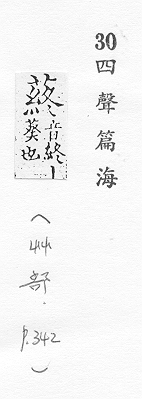 30四聲篇海
蔠音終丨
葵也
（艸部．p.342）